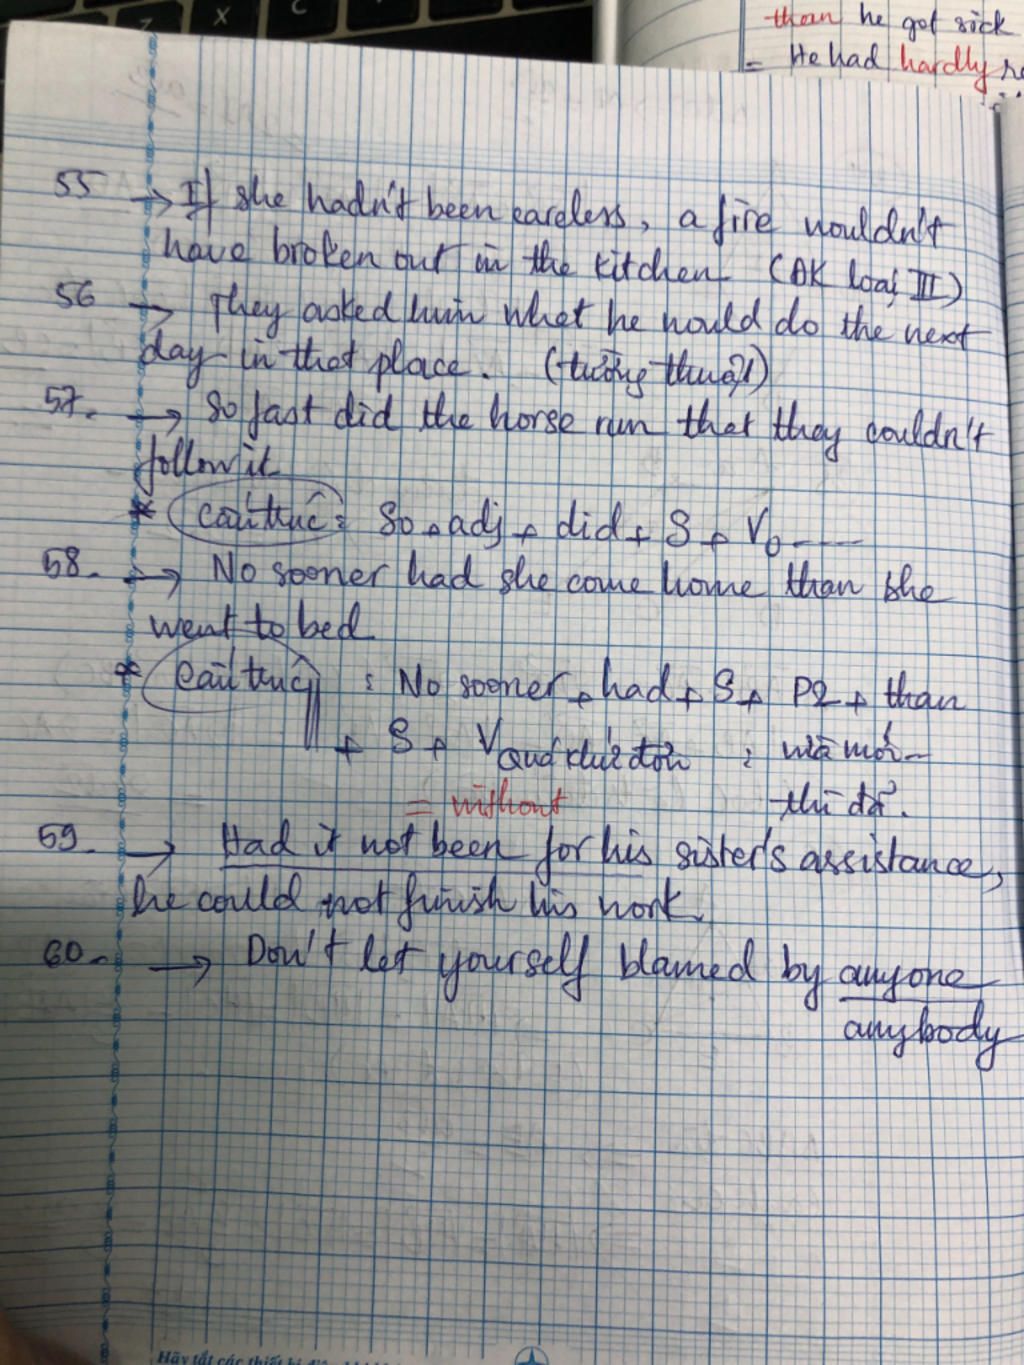 X
C
than he got sick
= He had hardly
55 → If she hadn't been careless, a fire wouldn't
have broken out in the kitchen (ĐK loại III)
56 → They asked him what he would do the next
day in that place. (tường thuật)
57. → So fast did the horse run that they couldn't
follow it
* Cấu trúc: So + adj + did + S + V₀ ----
58. → No sooner had she come home than she
went to bed
* Cấu trúc : No sooner + had + S + P2 + than
+ S + Vquá khứ đơn : vừa mới -
= without thì đã.
59. → Had it not been for his sister's assistance,
he could not finish his work.
60. → Don't let yourself blamed by anyone
anybody
Hãy tắt các thiết bị